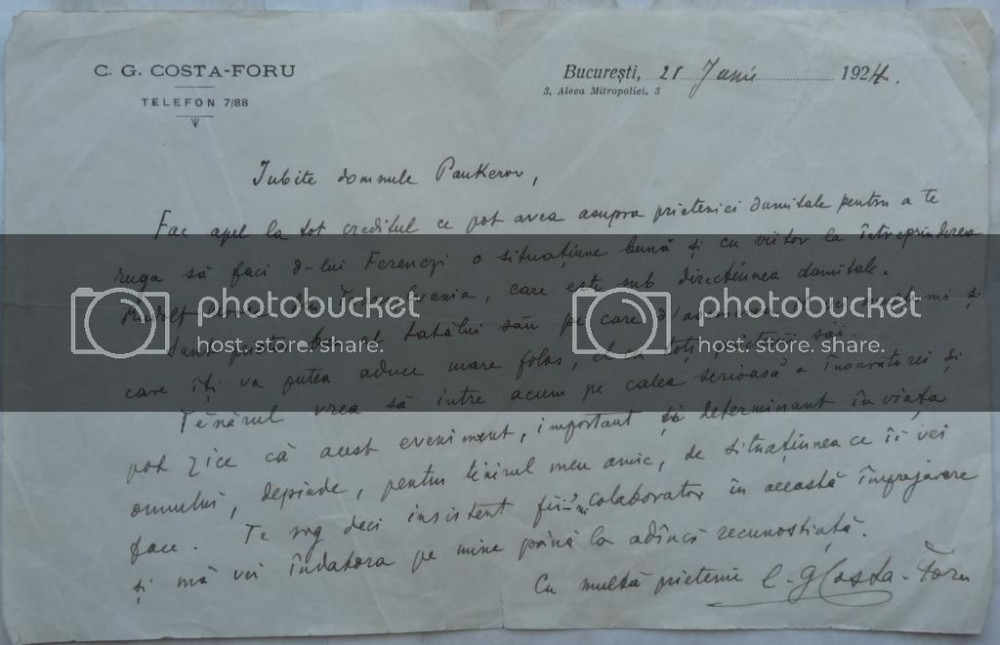 C. G. COSTA-FORU
TELEFON 7/88
București, 21 Junie 1924.
3, Aleea Mitropoliei, 3
Iubite domnule Paukerov,
Fac apel la tot creditul ce pot avea asupra prieteniei dumitale pentru a te
ruga să faci d-lui Ferenczi o situațiune bună și cu viitor la întreprinderea
din Transilvania, care este sub direcțiunea dumitale.
Sunt prieten tatălui său pe care
care îți va putea aduce mare folos,
Tênărul vrea să intre acum pe calea serioasă a însurătorei și
pot zice că acest eveniment, important și determinant în viața
omului, depinde, pentru tînĕrul meu amic, de situațiunea ce îi vei
face. Te rog deci insistent colaborator în această împrejurare
și mă vei îndatora pe mine până la adîncă recunoștiață.
Cu multă prietenie C. G. Costa-Foru
photobucket
host. store. share.
photobucket
host. store. share.